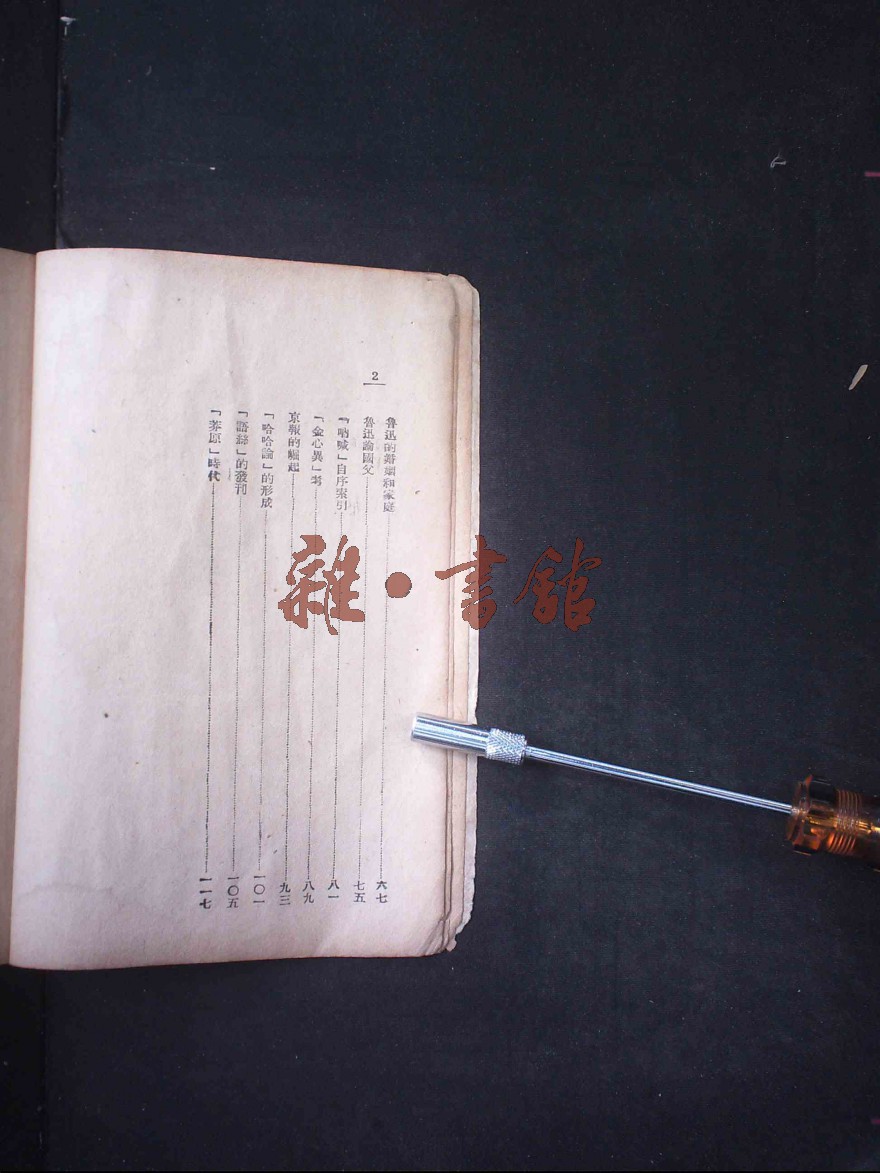 2
魯迅的婚姻和家庭 六七
魯迅論國父 七五
「吶喊」自序索引 八一
「金心異」考 八九
京報的崛起 九三
「哈哈論」的形成 一〇一
「語絲」的發刊 一〇五
「莽原」時代 一一七
雜·書館